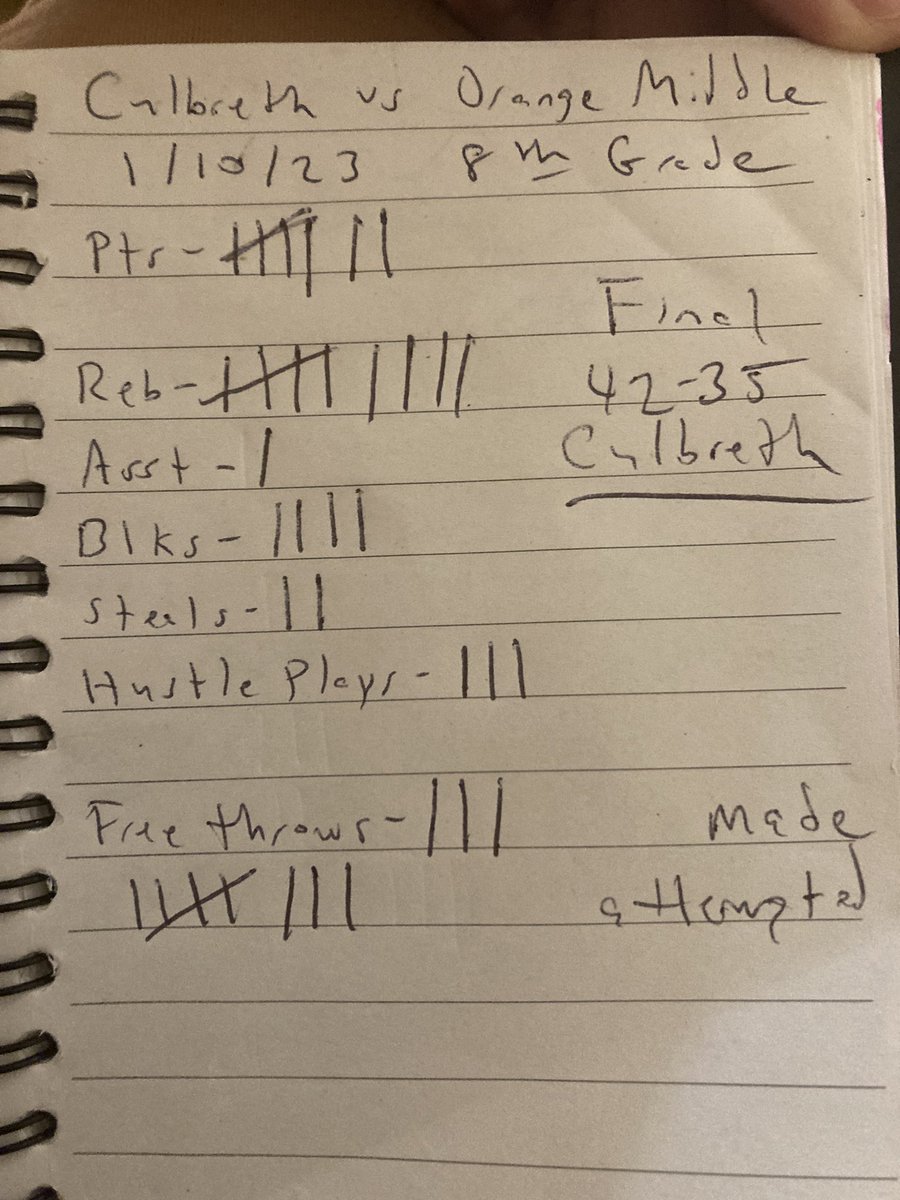 Culbreth vs Orange Middle
1/10/23 8th Grade
Pts - |||| ||
Final
Reb - |||| ||||
42-35
Asst - |
Culbreth
Blks - ||||
Steals - ||
Hustle Plays - |||
Free throws - ||| Made
|||| ||| attempted